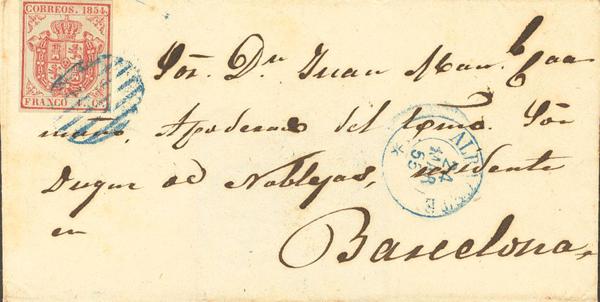 CORREOS. 1854.
FRANCO
Sór. Dn. Juan Man. Caa
maño, Apoderado del Exmo. Sór
Duque de Noblejas, residente
en
Barcelona.
24
MAR
55